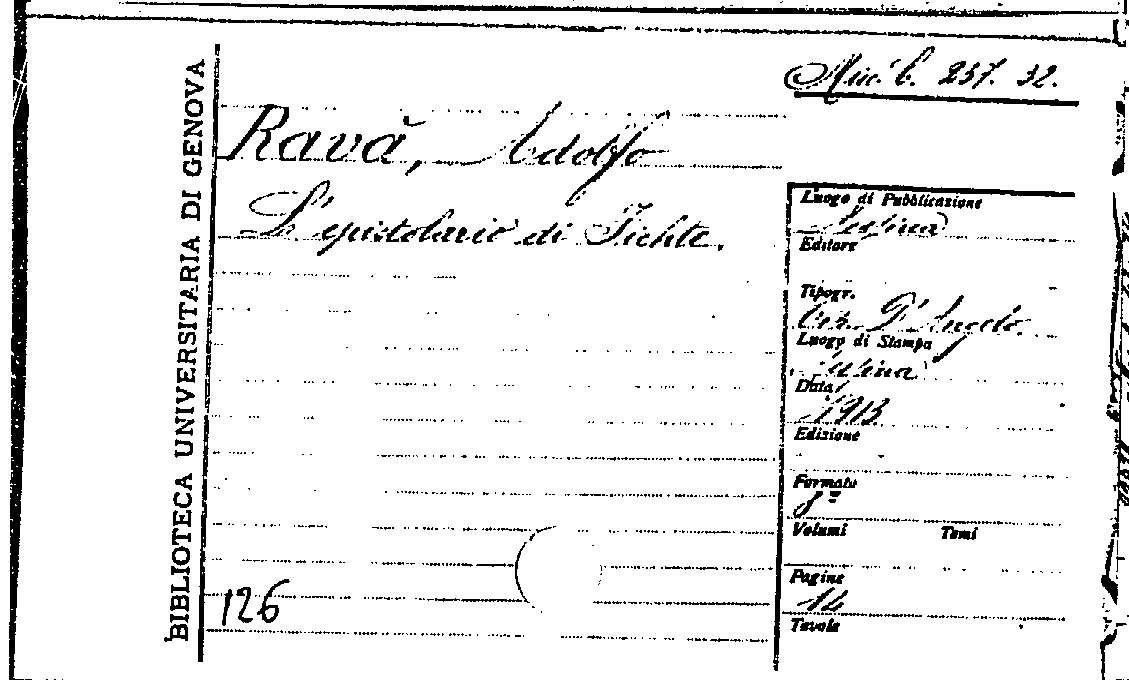 BIBLIOTECA UNIVERSITARIA DI GENOVA
Misc. b. 237. 32.
Ravà, Adolfo
L'epistolario di Fichte.
126
Luogo di Pubblicazione
Editore
Tipogr.
D'Angelo.
Luogo di Stampa
Data
1913
Edizione
Formato
8º
Volumi Tomi
Pagine
14
Tavole